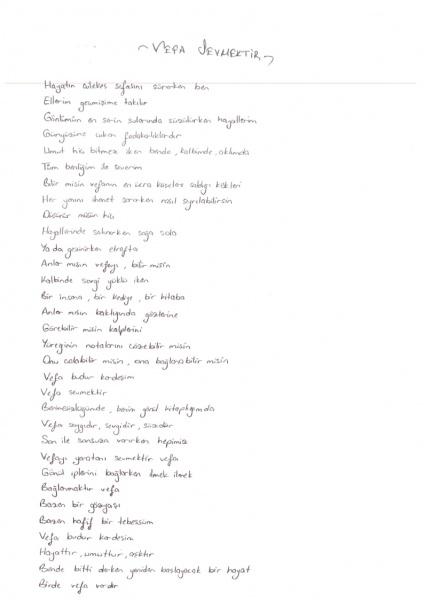 ~ VEFA SEVMEKTİR ~
Hayatın sefasını sürerken ben
Ellerim geçmişime takılır
Gönlümün en serin sularında süzülürken hayallerim
Günyüzüne çıkan fedakarlıklardır
Umut hiç bitmez iken bende, kalbimde, aklımda
Tüm benliğim ile severim
Bilir misin vefanın en ücra köşelere saldığı kökleri
Her yanını ihanet sararken nasıl sıyrılabilirsin
Düşünür müsün hiç
Hayallerinde salınırken sağa sola
Ya da gezinirken etrafta
Anlar mısın vefayı, bilir misin
Kalbinde sevgi yüklü iken
Bir insana, bir kediye, bir kitaba
Anlar mısın baktığında gözlerine
Görebilir misin kalplerini
Yüreğinin notalarını çözebilir misin
Onu çalabilir misin, ona bağlanabilir misin
Vefa budur kardeşim
Vefa sevmektir
Benim gönül kitaplığımda
Vefa saygıdır, sevgidir,
Son ile sonsuza varırken hepimiz
Vefayı yaratanı sevmektir vefa
Gönül iplerini bağlarken ilmek ilmek
Bağlanmaktır vefa
Bazen bir gözyaşı
Bazen hafif bir tebessüm
Vefa budur kardeşim
Hayattır, umuttur, aşktır
Bende bitti derken yeniden başlayacak bir hayat
Birde vefa vardır